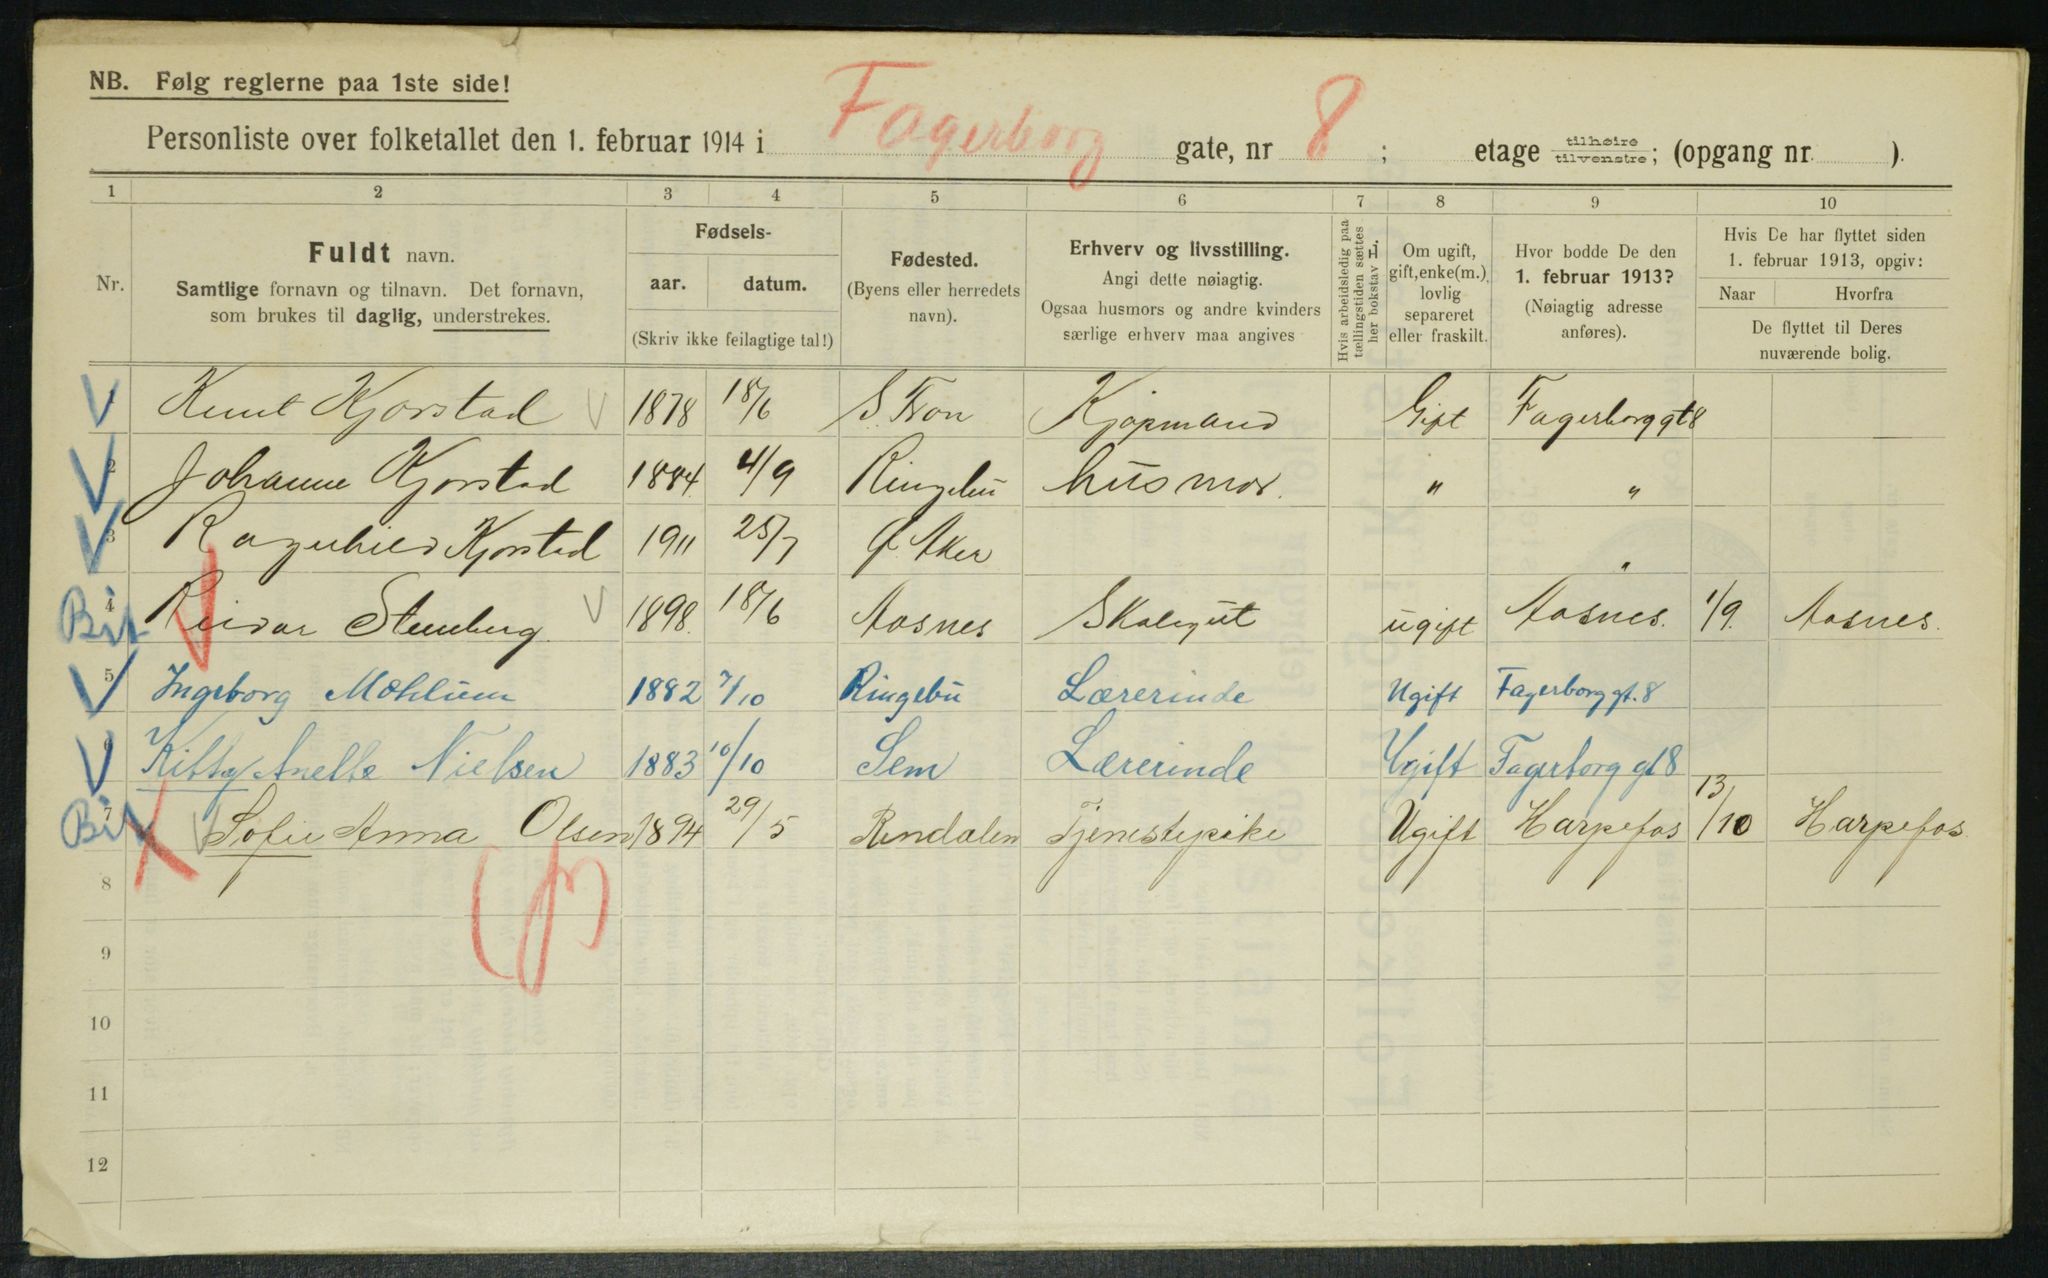 NB. Følg reglerne paa 1ste side!
Personliste over folketallet den 1. februar 1914 i Fagerborg gate, nr 8 ; etage tilhøire tilvenstre; (opgang nr. ).
1 2 3 4 5 6 7 8 9 10
Nr.
Fuldt navn.
Samtlige fornavn og tilnavn. Det fornavn,
som brukes til daglig, understrekes.
Fødsels-
aar. datum.
(Skriv ikke feilagtige tal!)
Fødested.
(Byens eller herredets
navn).
Erhverv og livsstilling.
Angi dette nøiagtig.
Ogsaa husmors og andre kvinders
særlige erhverv maa angives
Hvis arbeidsledig paa
tællingstiden sættes
her bokstav L.
Om ugift,
gift, enke(m.),
lovlig
separeret
eller fraskilt.
Hvor bodde De den
1. februar 1913?
(Nøiagtig adresse
anføres).
Hvis De har flyttet siden
1. februar 1913, opgiv:
Naar Hvorfra
De flyttet til Deres
nuværende bolig.
1 Knut Kjorstad 1878 18/6 S. Fron Kjøpmand Gift Fagerborg gt 8
2 Johanne Kjorstad 1884. 4/9 Ringebu husmor. " "
3 Ragnhild Kjorstad 1911 25/7 Ø. Aker "
Bit 4 Reidar Stenberg 1898. 18/6 Aasnes Skolegut ugift Aasnes. 1/9. Aasnes.
5 Ingeborg Mæhlum 1882 7/10 Ringebu Lærerinde Ugift Fagerborg gt. 8
6 Kitty Anette Nielsen 1883 10/10 Sem Lærerinde Ugift Fagerborg gt 8
Bit 7 Sofie Anna Olsen 1894 29/5 Rendalen Tjenestepike Ugift Harpefos 13/10 Harpefos.
8
9
10
11
12